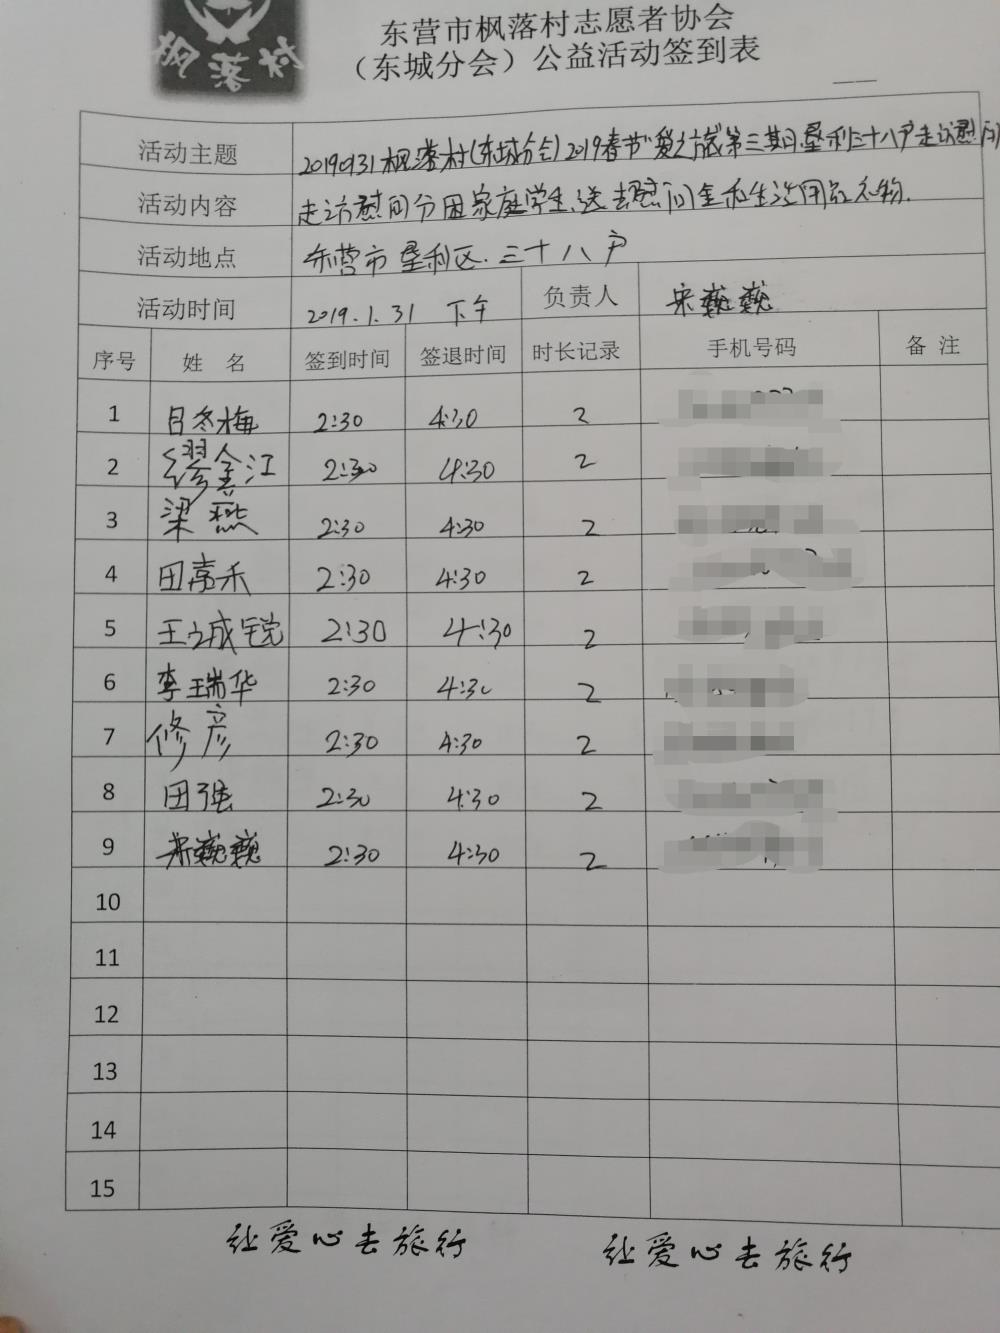 枫落村
东营市枫落村志愿者协会
（东城分会）公益活动签到表
活动主题 20190131枫落村(东城分会)2019春节"爱之旅"第三期垦利三十八户走访慰问
活动内容 走访慰问分困家庭学生,送去慰问金和生活用品礼物.
活动地点 东营市垦利区.三十八户
活动时间 2019.1.31 下午 负责人 宋巍巍
序号 姓 名 签到时间 签退时间 时长记录 手机号码 备 注
1 吕冬梅 2:30 4:30 2
2 缪金江 2:30 4:30 2
3 梁燕 2:30 4:30 2
4 田嘉禾 2:30 4:30 2
5 王之诚锐 2:30 4:30 2
6 李瑞华 2:30 4:30 2
7 修彦 2:30 4:30 2
8 田强 2:30 4:30 2
9 宋巍巍 2:30 4:30 2
10
11
12
13
14
15
让爱心去旅行 让爱心去旅行